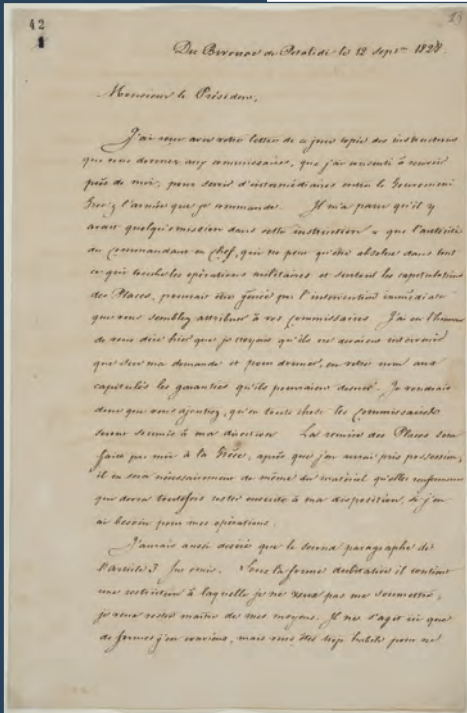 42
1
Du Bivouac de Petalidi le 12 Septbre 1828.
Monsieur le Président,
J'ai reçu avec votre lettre de ce jour copie des instructions
que vous donnez aux commissaires, que j'ai consenti à recevoir
près de moi, pour servir d'intermédiaires entre le Gouvernement
Grec & l'armée que je commande. Il m'a paru qu'il y
avait quelqu'omission dans cette instruction & que l'autorité
du Commandant en Chef, qui ne peut qu'être absolue dans tout
ce qui touche les opérations militaires et surtout les capitulations
des Places, pourrait être gênée par l'intervention immédiate
que vous semblez attribuer à vos Commissaires. J'ai eu l'honneur
de vous dire hier que je croyais qu'ils ne devaient intervenir
que sur ma demande et pour donner, en votre nom aux
capitulés les garanties qu'ils pourraient desirer. Je voudrais
donc que vous ajoutiez, qu'en toute chose les Commissaires
seront soumis à ma direction. La remise des Places sera
faite par moi à la Grèce, après que j'en aurai pris possession;
il en sera nécessairement de même du matériel qu'elles renferment
qui devra toutefois rester ensuite à ma disposition, si j'en
ai besoin pour mes opérations.
J'aurais aussi désiré que le second paragraphe de
l'article 3 fut omis. Sous la forme dubitative il contient
une restriction à laquelle je ne veux pas me soumettre,
je veux rester maître de mes moyens. Il ne s'agit ici que
de formes j'en conviens, mais vous êtes trop habile pour ne